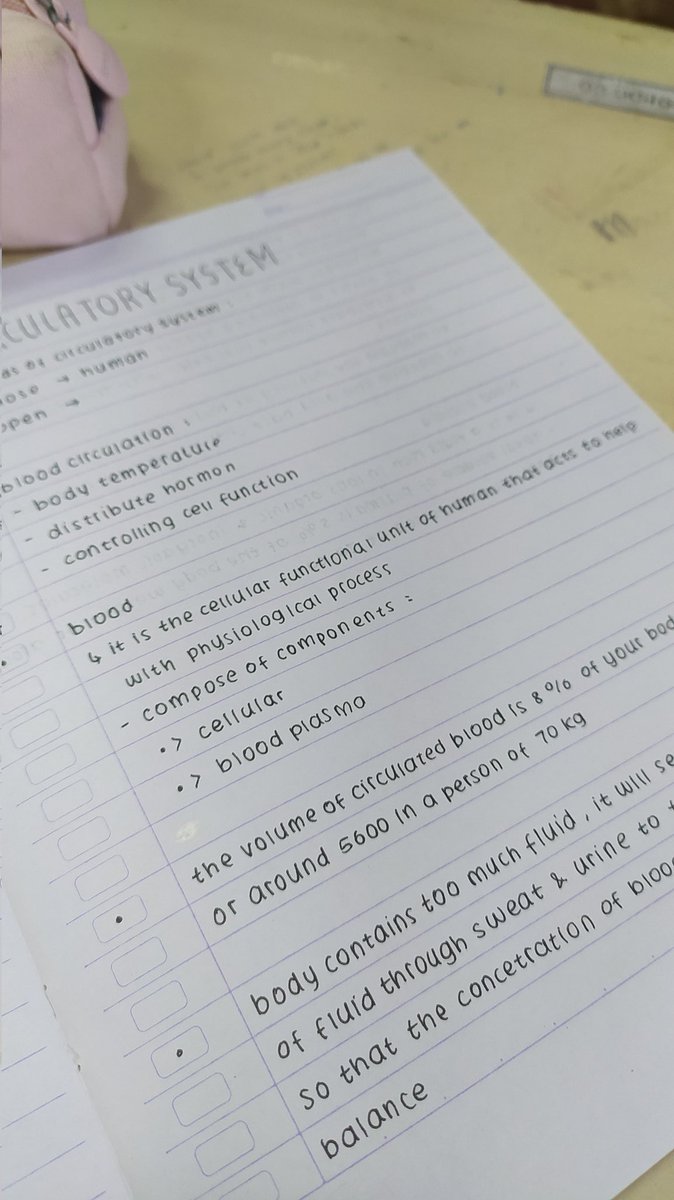 CULATORY SYSTEM
as of circulatory system :
ose → human
open →
blood circulation :
- body temperature
- distribute hormon
- controlling cell function
blood
↳ it is the cellular functional unit of human that acts to help
with physiological process
- compose of components :
•> cellular
•> blood plasma
the volume of circulated blood is 8% of your bod
or around 5600 in a person of 70 kg
body contains too much fluid, it will se
of fluid through sweat & urine to t
so that the concetration of bloo
balance